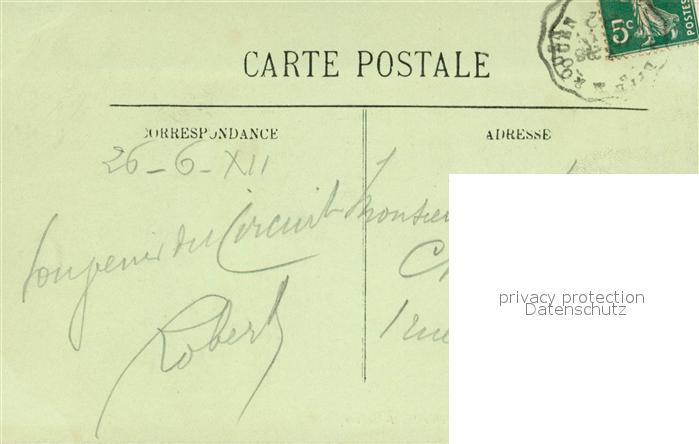 5c
POSTES
ROUEN
CARTE POSTALE
CORRESPONDANCE
ADRESSE
26-6-XII
Souvenir du Circuit
Robert
Monsieu
1 rue
privacy protection
Datenschutz